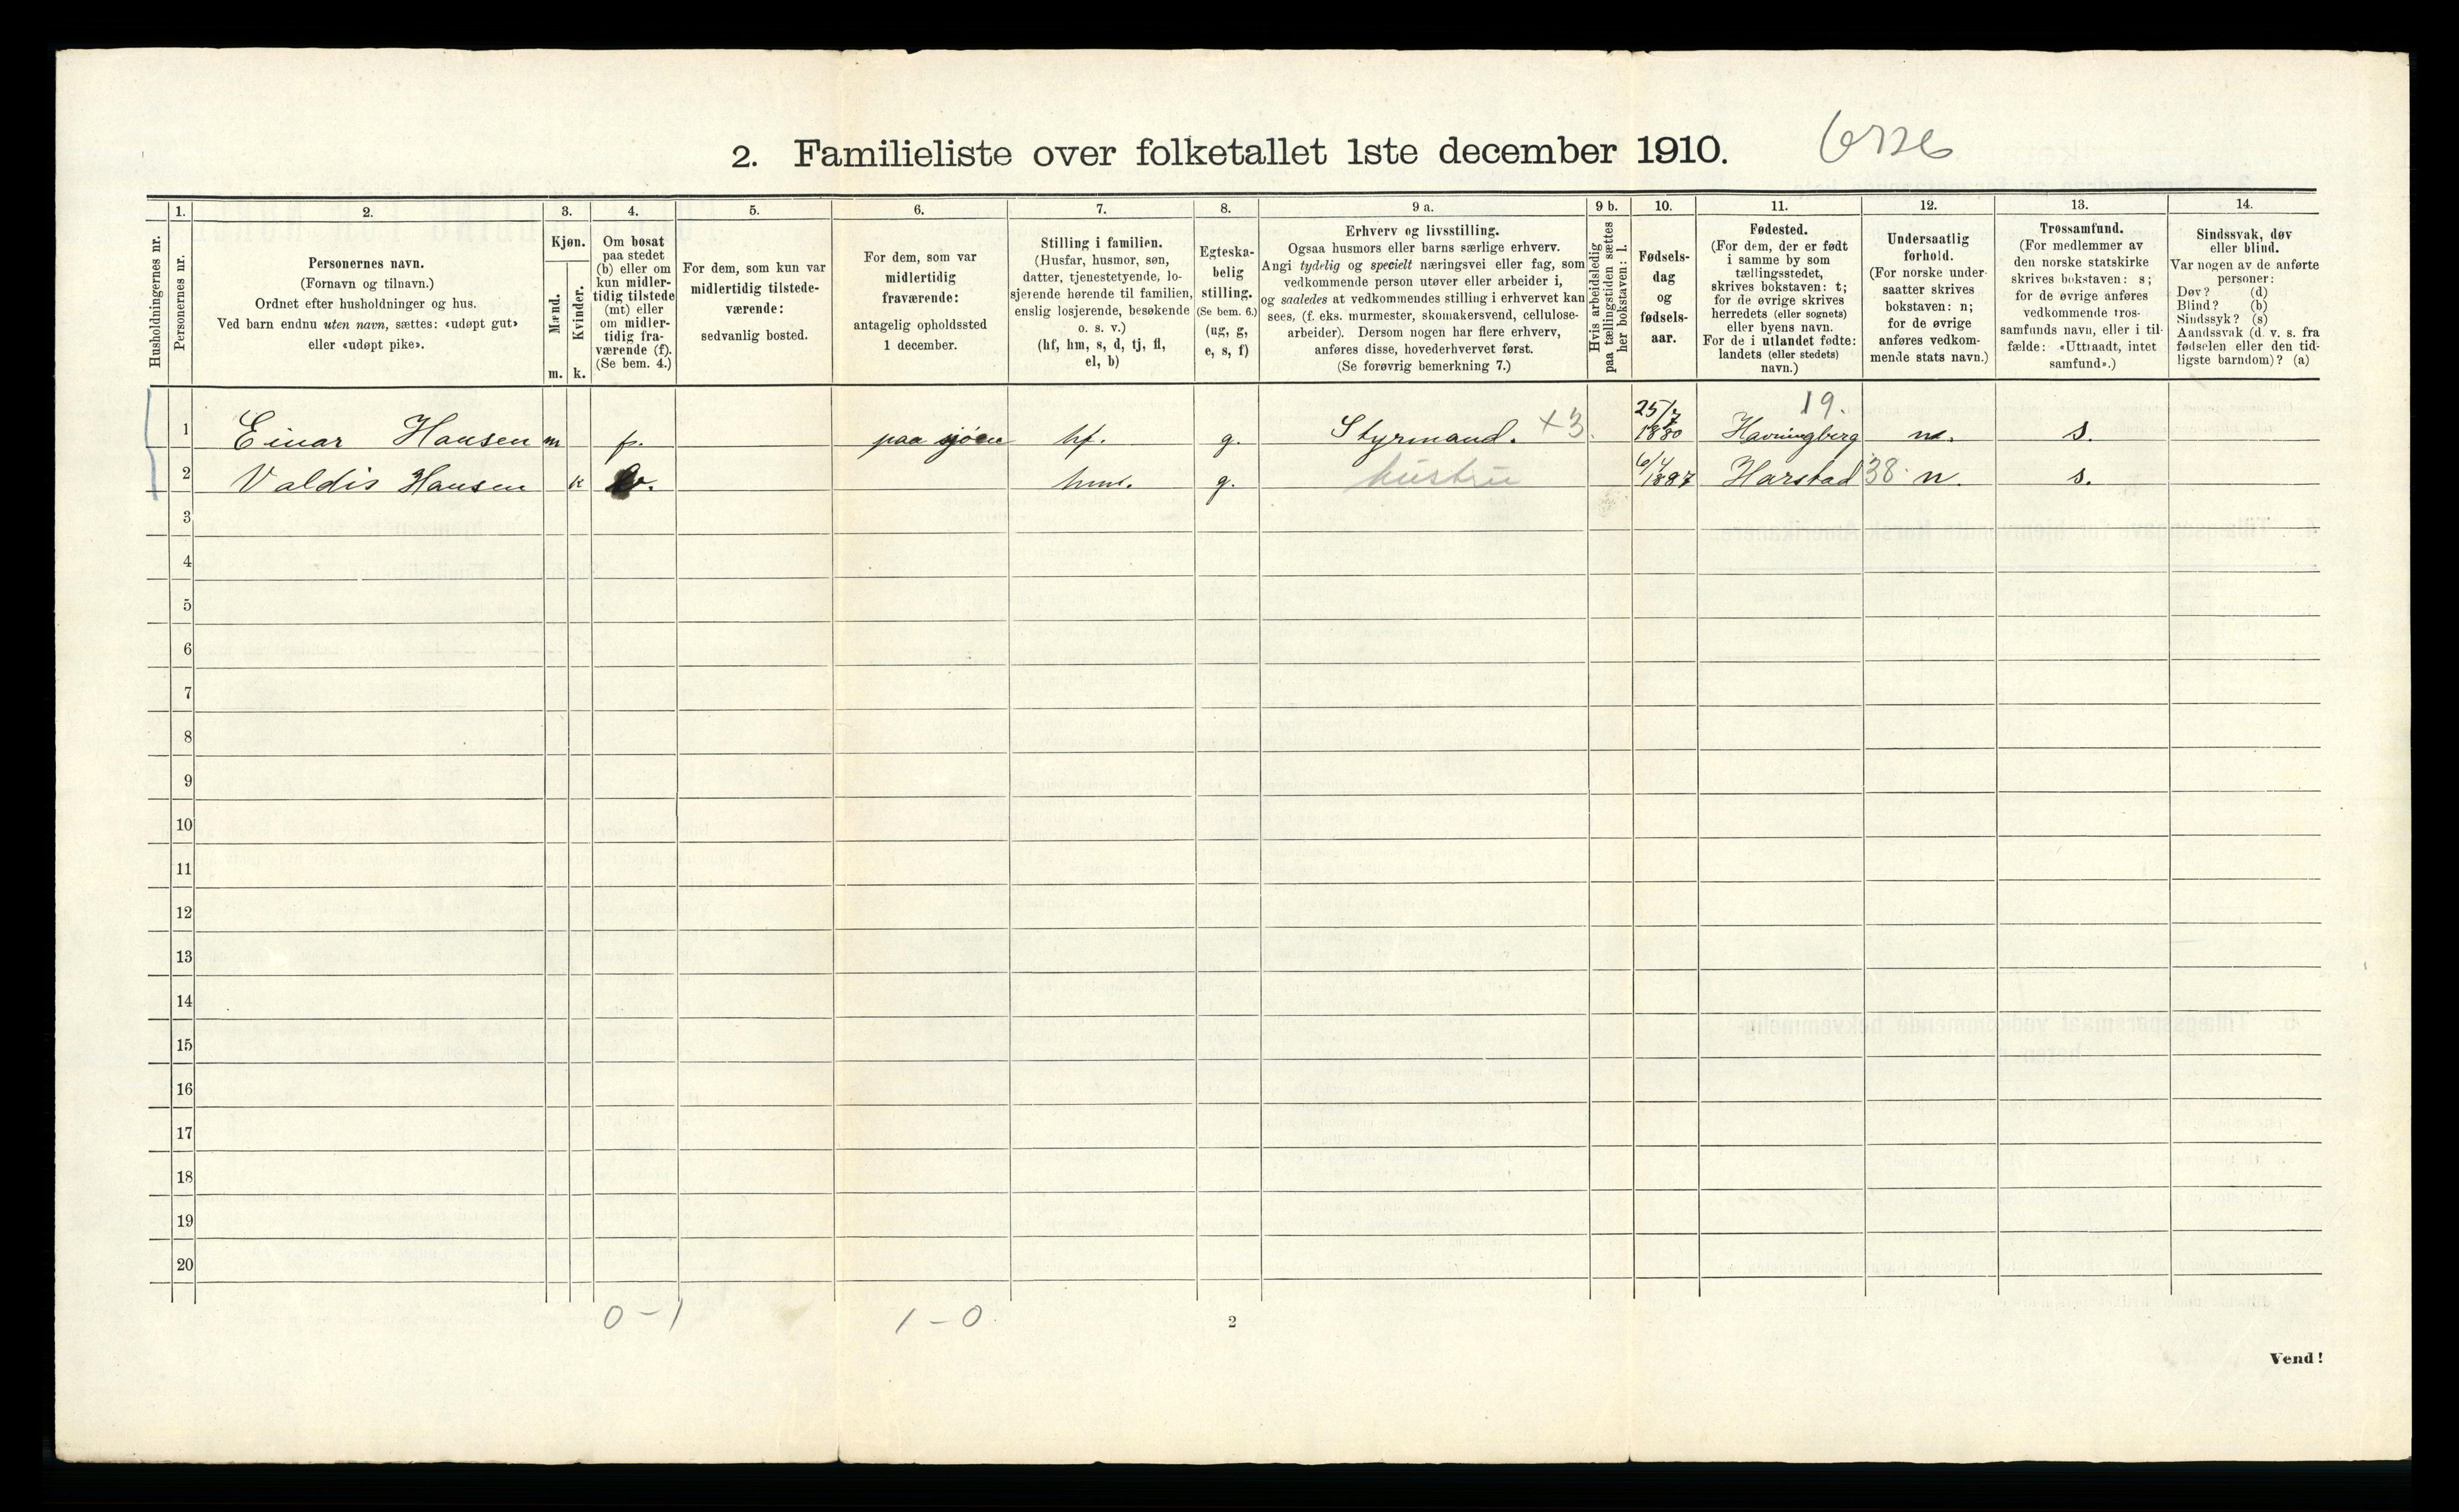 2. Familieliste over folketallet 1ste december 1910.
Husholdningernes nr.
1. Personernes nr.
2. Personernes navn.
(Fornavn og tilnavn.)
Ordnet efter husholdninger og hus.
Ved barn endnu uten navn, sættes: «udøpt gut»
eller «udøpt pike».
3. Kjøn.
Mænd. m.
Kvinder. k.
4. Om bosat
paa stedet
(b) eller om
kun midler-
tidig tilstede
(mt) eller
om midler-
tidig fra-
værende (f).
(Se bem. 4.)
5. For dem, som kun var
midlertidig tilstede-
værende:
sedvanlig bosted.
6. For dem, som var
midlertidig
fraværende:
antagelig opholdssted
1 december.
7. Stilling i familien.
(Husfar, husmor, søn,
datter, tjenestetyende, lo-
sjerende hørende til familien,
enslig losjerende, besøkende
o. s. v.)
(hf, hm, s, d, tj, fl,
el, b)
8. Egteska-
belig
stilling.
(Se bem. 6.)
(ug, g,
e, s, f)
9 a. Erhverv og livsstilling.
Ogsaa husmors eller barns særlige erhverv.
Angi tydelig og specielt næringsvei eller fag, som
vedkommende person utøver eller arbeider i,
og saaledes at vedkommendes stilling i erhvervet kan
sees, (f. eks. murmester, skomakersvend, cellulose-
arbeider). Dersom nogen har flere erhverv,
anføres disse, hovederhvervet først.
(Se forøvrig bemerkning 7.)
9 b. Hvis arbeidsledig
paa tællingstiden sættes
her bokstaven: l.
10. Fødsels-
dag
og
fødsels-
aar.
11. Fødested.
(For dem, der er født
i samme by som
tællingsstedet,
skrives bokstaven: t;
for de øvrige skrives
herredets (eller sognets)
eller byens navn.
For de i utlandet fødte:
landets (eller stedets)
navn.)
12. Undersaatlig
forhold.
(For norske under-
saatter skrives
bokstaven: n;
for de øvrige
anføres vedkom-
mende stats navn.)
13. Trossamfund.
(For medlemmer av
den norske statskirke
skrives bokstaven: s;
for de øvrige anføres
vedkommende tros-
samfunds navn, eller i til-
fælde: «Uttraadt, intet
samfund».)
14. Sindssvak, døv
eller blind.
Var nogen av de anførte
personer:
Døv? (d)
Blind? (b)
Sindssyk? (s)
Aandssvak (d. v. s. fra
fødselen eller den tid-
ligste barndom)? (a)
19.
1 Einar Hansen m f. paa sjøen hf. g. Styrmand. +3 25/7 1880 Havningberg n. s.
2 Valdis Hansen k b. hm. g. hustru 6/4 1887 Harstad 38 n. s.
3
4
5
6
7
8
9
10
11
12
13
14
15
16
17
18
19
20
0 - 1 1 - 0
2
Vend!